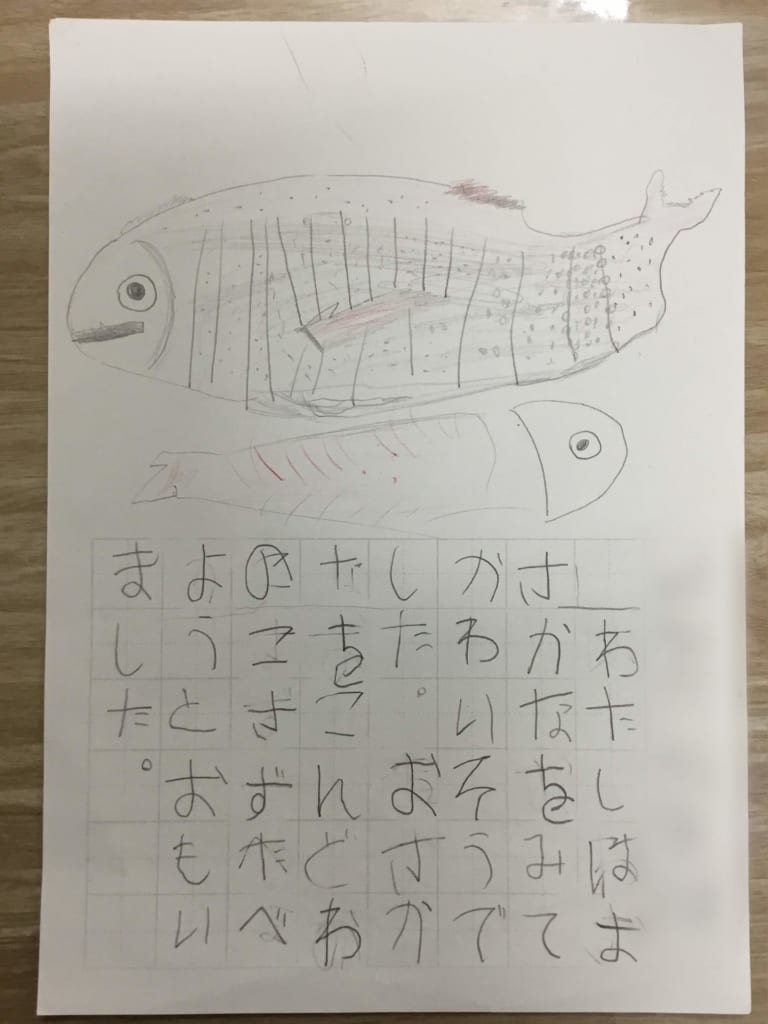 わたしはま
さかなをみて
かわいそうで
した。おさか
たをこんどわ
のこさずたべ
ようとおもい
ました。